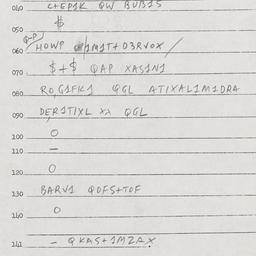 040 C+EP1K QW BUB1S
$
050
Q-P
060 HOWP 1M1T+D3RVOX /
070 $+$ QAP XAS1N1
080 RO,G1FK1 QGL ATIXAL1M1DRA
090 DER1TIXL XX QGL
100 O
110 —
120 O
130 BARV1 QOFS+TOF
140 O
141 — QKAS+1MZAX